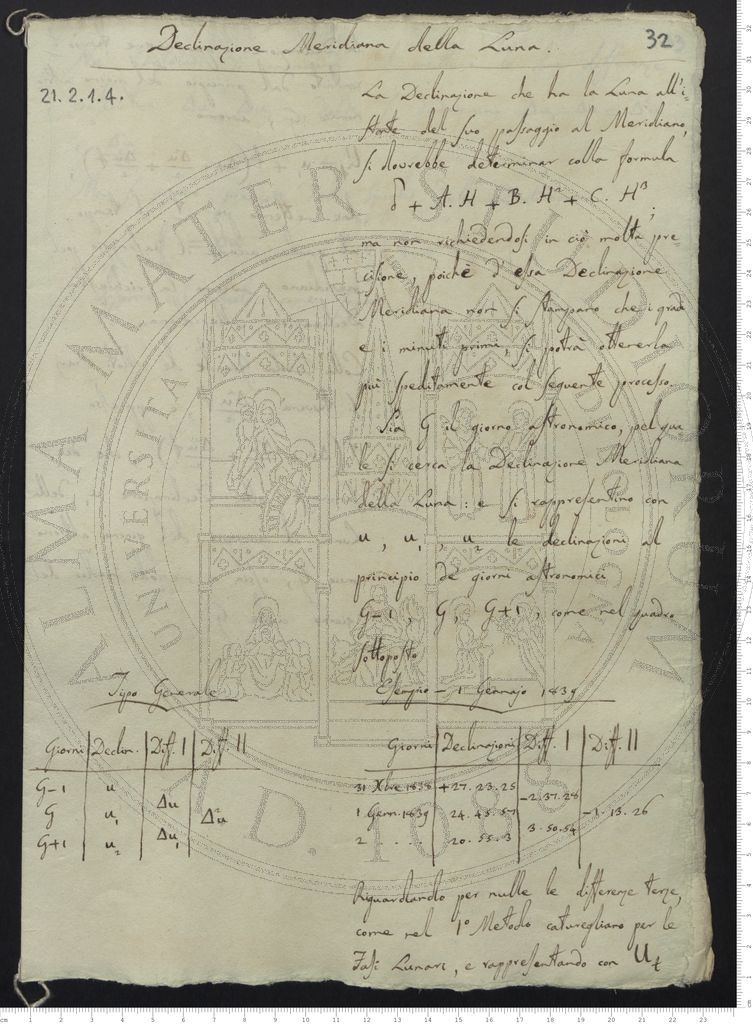 Declinazione Meridiana della Luna.
32
21.2.1.4.
La Declinazione che ha la Luna all'i=
stante del suo passaggio al Meridiano,
si dovrebbe determinar colla formula
δ + A. H + B. H² + C. H³ ;
ma non richiedendosi in ciò molta pre=
cisione, poichè d'essa Declinazione
Meridiana non si stampano che i gradi
e i minuti primi, si potrà ottenerla
più speditamente col seguente processo.
Sia G il giorno astronomico, pel qua
le si cerca la Declinazione Meridiana
della Luna: e si rappresentino con
u, u₁, u₂ le declinazioni al
principio de' giorni astronomici
G-1, G, G+1, come nel quadro
sottoposto
Tipo Generale
Giorni Declin. Diff. I Diff. II
G-1 u
Δu
G u₁ Δ²u
Δu₁
G+1 u₂
Esempio - 1 Gennajo 1839
Giorni Declinazioni Diff. I Diff. II
31 Xbre 1838 +27.23.25
-2.37.28
1 Genn. 1839 24.45.57 -1.13.26
3.50.54
2 . . . 20.55.3
Riguardando per nulle le differenze terze,
come nel 1º Metodo caturegliano per le
Fasi Lunari, e rappresentando con Uₜ
ALMA MATER STUDIORUM
UNIVERSITA
BOLOGNA
A.D. 1088